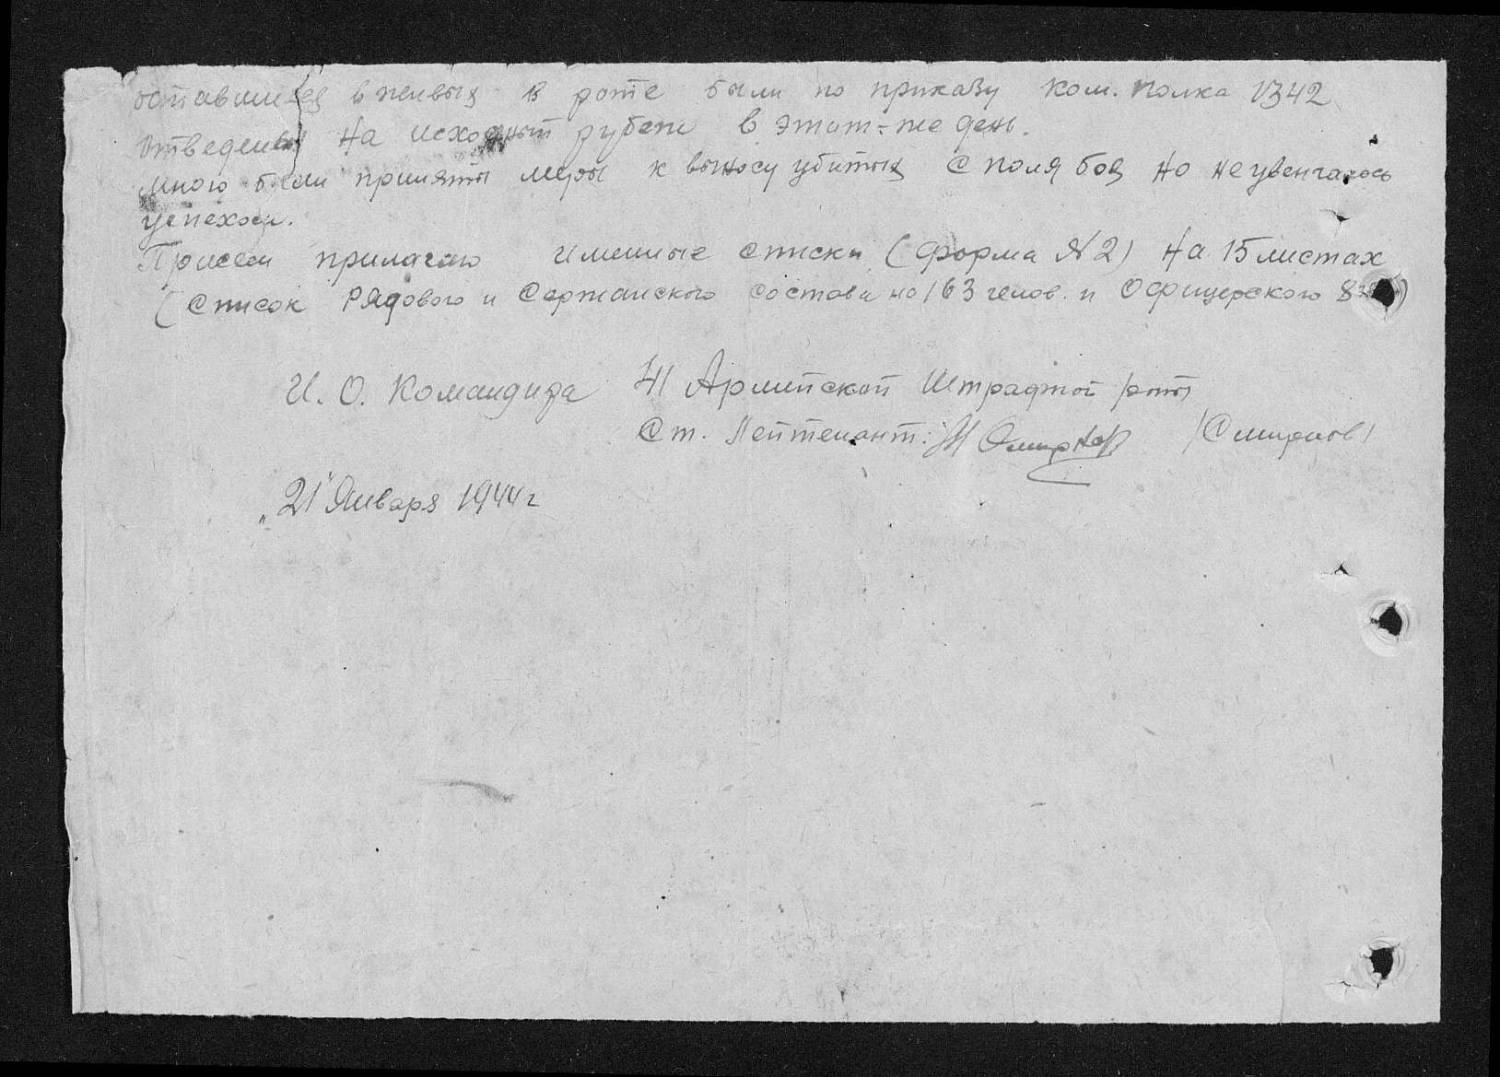 оставшиеся в живых в роте были по приказу ком. полка 1342
отведены на исходный рубеж в этот-же день.
мною были приняты меры к выносу убитых с поля боя но не увенчалось
успехом.
Присем прилагаю именные списки (форма №2) на 15 листах
(список Рядового и Сержанского состава на 163 челов. и Офицерского 8
И. О. Командира Армейской Штрафной роты
Ст. Лейтенант: Смирнов /Смирнов/
"21" Января 1944 г